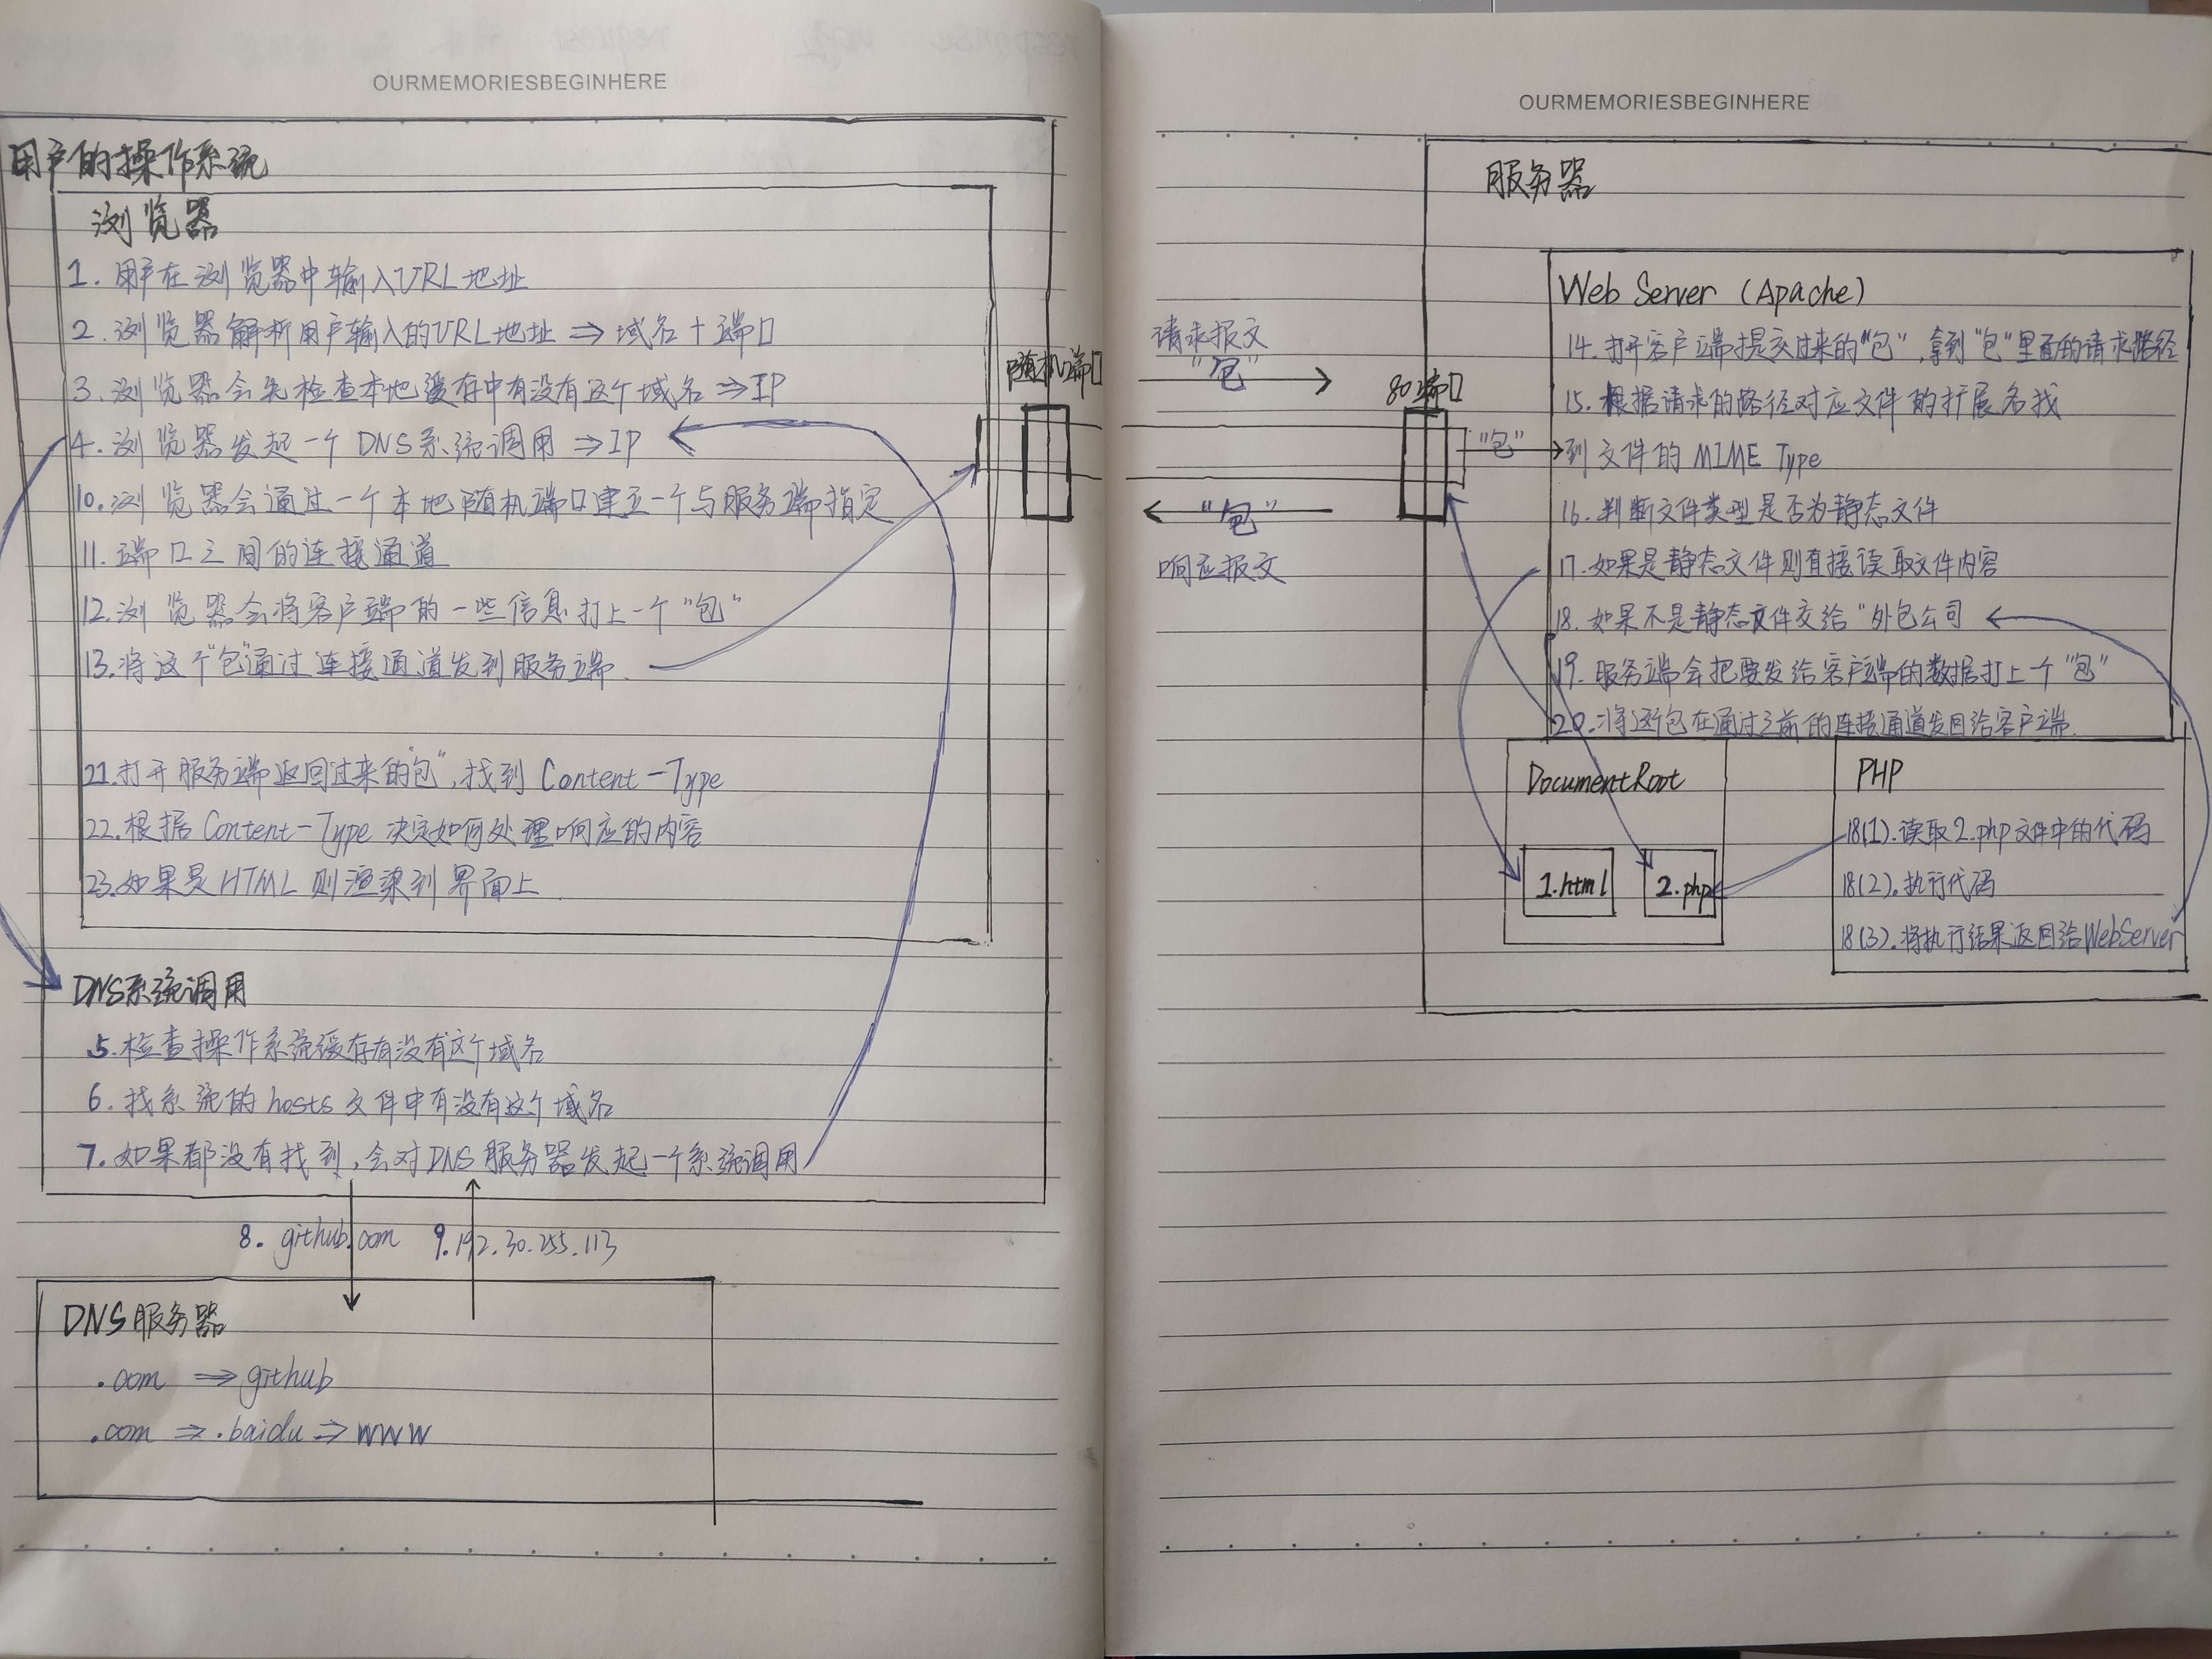 OURMEMORIESBEGINHERE
用户的操作系统
浏览器
1. 用户在浏览器中输入URL地址
2. 浏览器解析用户输入的URL地址 ⇒ 域名+端口
3. 浏览器会先检查本地缓存中有没有这个域名 ⇒ IP
4. 浏览器发起一个 DNS系统调用 ⇒ IP
10. 浏览器会通过一个本地随机端口建立一个与服务端指定
11. 端口之间的连接通道
12. 浏览器会将客户端的一些信息打上一个"包"
13. 将这个"包"通过连接通道发到服务端.
21. 打开服务端返回过来的"包",找到 Content-Type
22. 根据 Content-Type 决定如何处理响应的内容
23. 如果是 HTML 则渲染到界面上
随机端口
DNS系统调用
5. 检查操作系统缓存有没有这个域名
6. 找系统的 hosts 文件中有没有这个域名
7. 如果都没有找到,会对DNS服务器发起一个系统调用
8. github.com 9. 192.30.255.113
DNS服务器
.com ⇒ github
.com ⇒ .baidu ⇒ www
OURMEMORIESBEGINHERE
请求报文
"包"
"包"
响应报文
80端口
"包"
服务器
Web Server (Apache)
14. 打开客户端提交过来的"包",拿到"包"里面的请求路径
15. 根据请求的路径对应文件的扩展名找
到文件的 MIME Type
16. 判断文件类型是否为静态文件
17. 如果是静态文件则直接读取文件内容
18. 如果不是静态文件交给"外包公司
19. 服务端会把要发给客户端的数据打上一个"包"
20. 将这个包在通过之前的连接通道发回给客户端.
DocumentRoot
1.html
2.php
PHP
18(1). 读取2.php文件中的代码
18(2). 执行代码
18(3). 将执行结果返回给WebServer